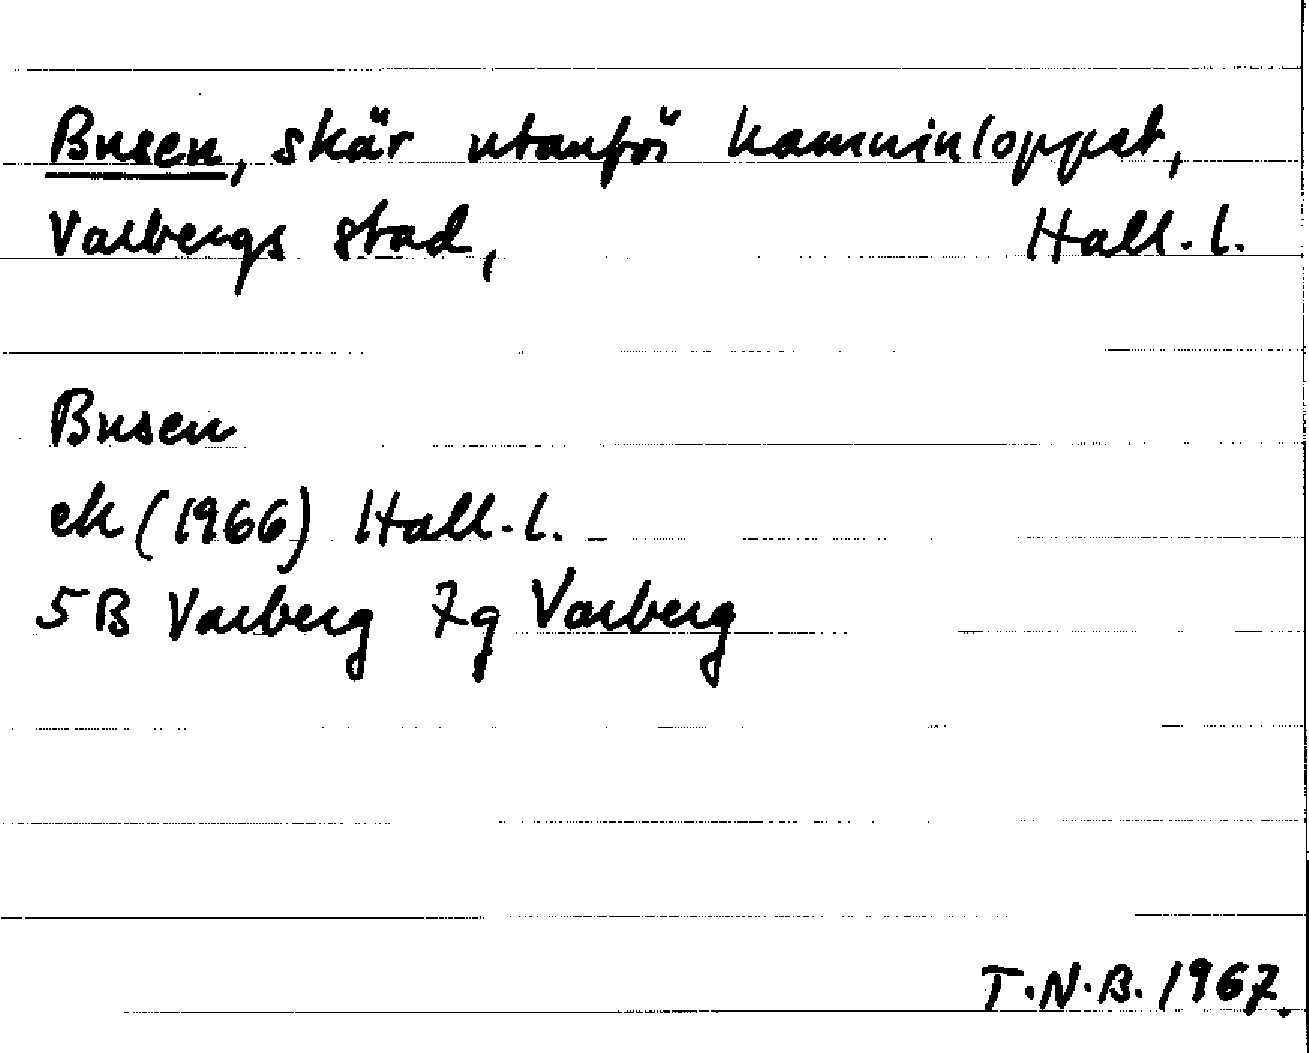 Busen, skär utanför hamninloppet,
Varbergs stad, Hall. l.
Busen
ek (1966) Hall. l.
5B Varberg 7g Varberg
T.N.B. 1967.